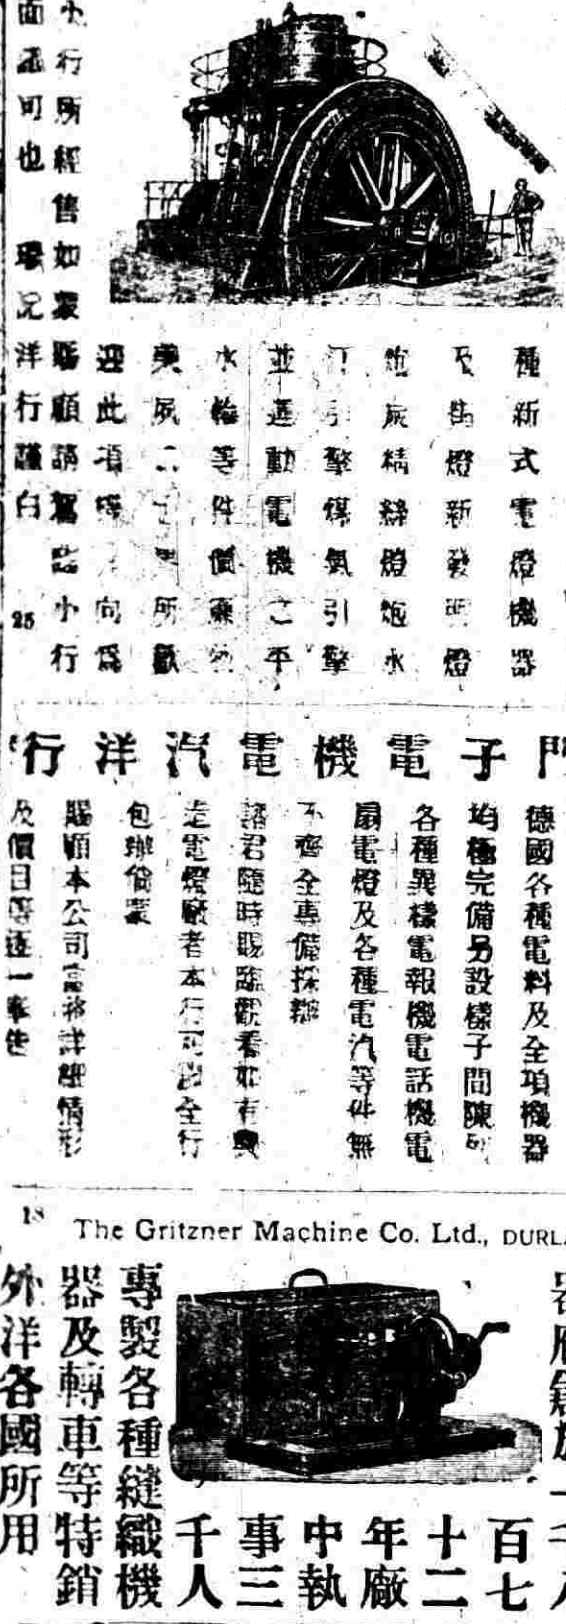 種新式電燈機器
及街燈新發明燈
炮炭精絲燈炮水
汀引擎煤氣引擎
並運動電機之平
水輪等件價廉
所歡
迎此項 向爲
小行所經售如蒙賜顧請駕臨小行
面議可也 洋行謹白
25
門子電機電汽洋行
德國各種電料及全項機器
均極完備另設樣子間陳列
各種異樣電報機電話機電
扇電燈及各種電汽等件無
不齊全專備採辦
諸君隨時賜臨觀看如有興
造電燈廠者本行可以全行
包辦倘蒙
賜顧本公司當將詳細情形
及價目等逐一奉告
18
The Gritzner Machine Co. Ltd., DURLA
百七
十二
年廠
中執
事三
千人
專製各種縫織機
器及轉車等特銷
外洋各國所用